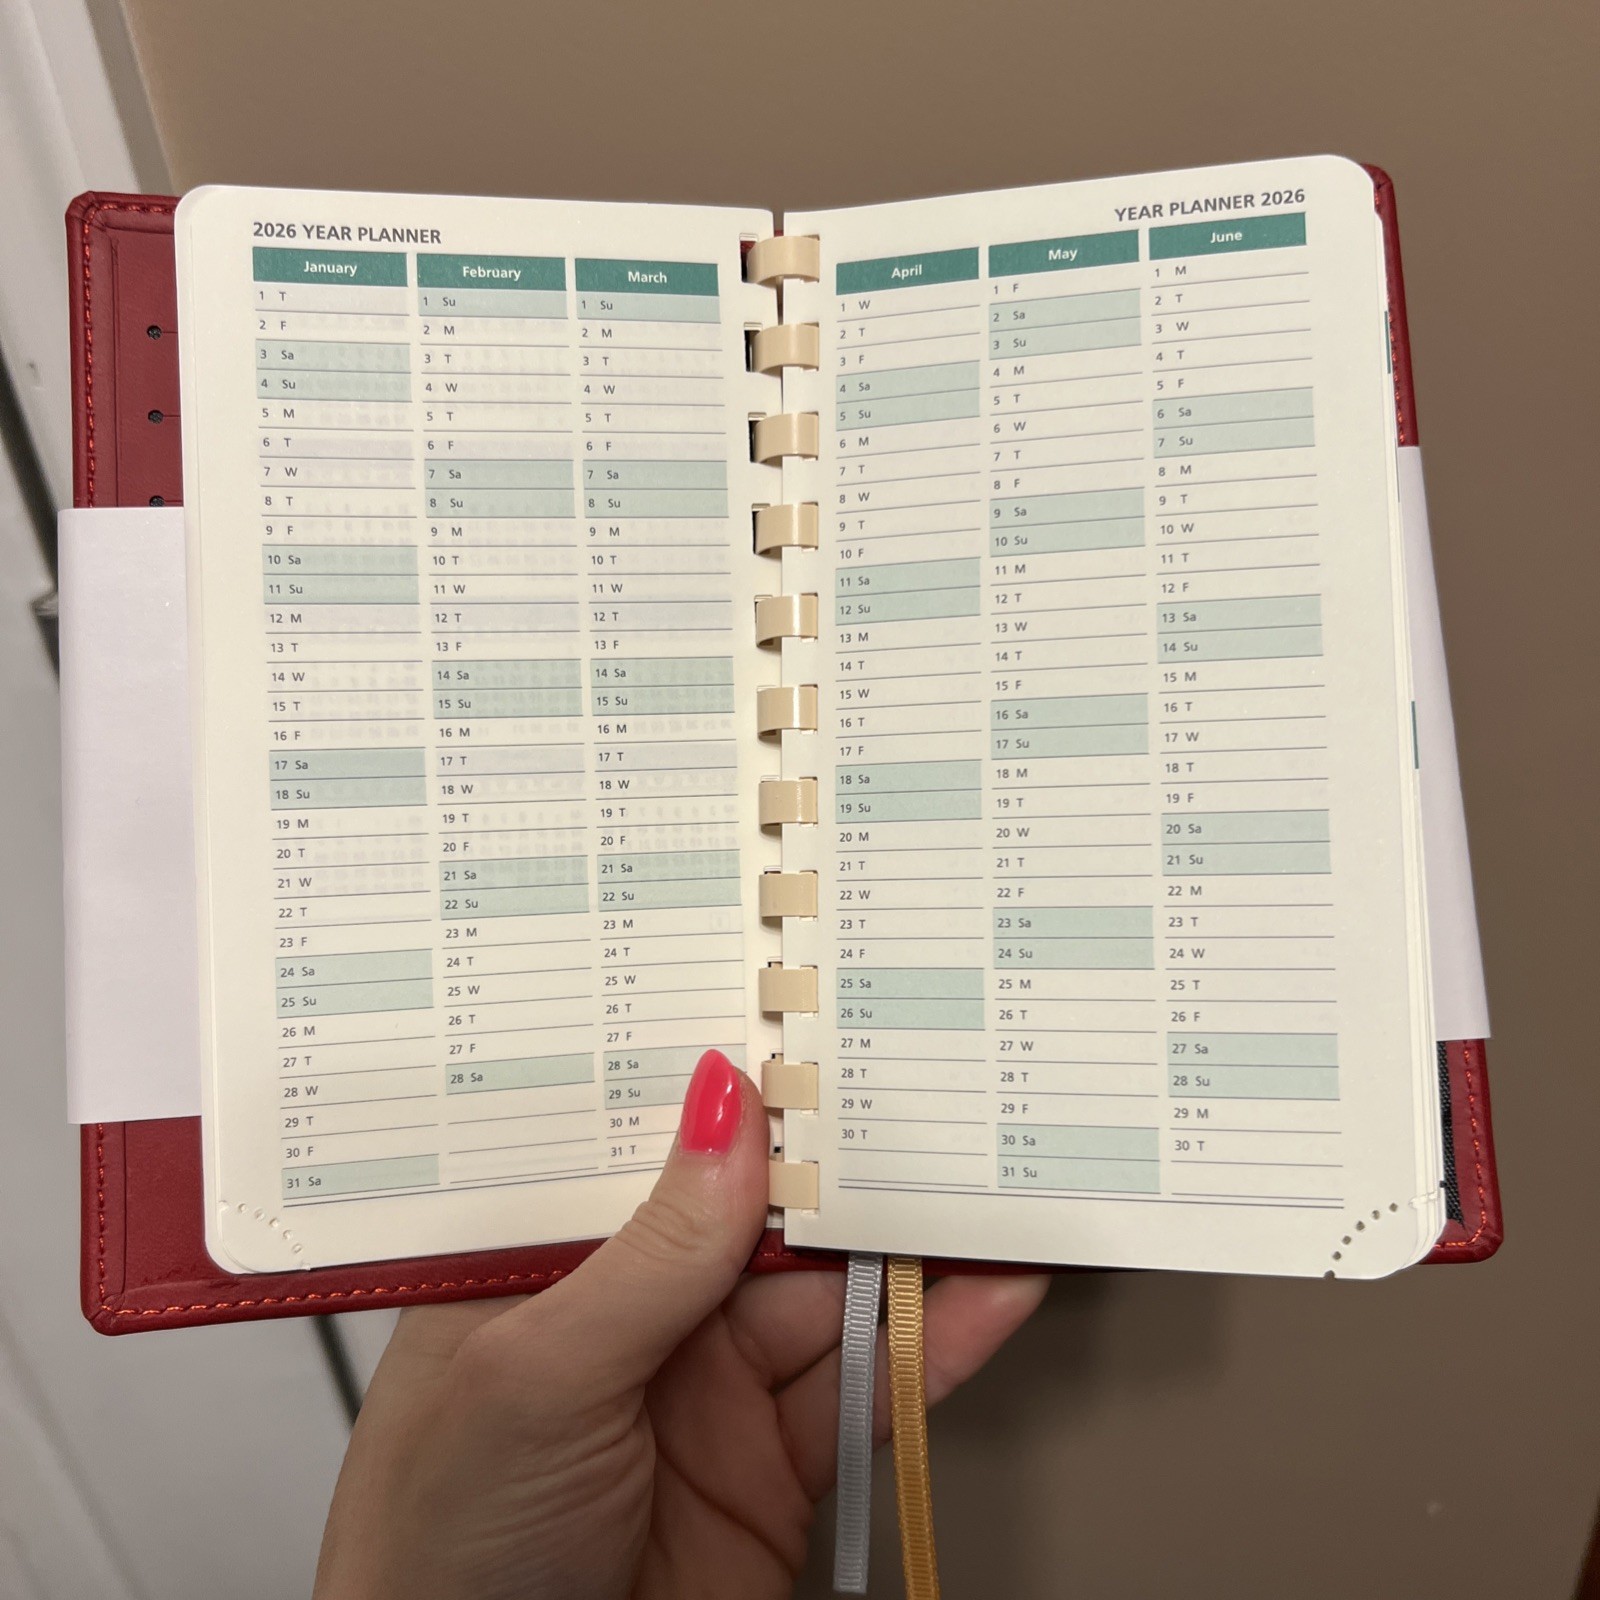 2026 YEAR PLANNER
January
1 T
2 F
3 Sa
4 Su
5 M
6 T
7 W
8 T
9 F
10 Sa
11 Su
12 M
13 T
14 W
15 T
16 F
17 Sa
18 Su
19 M
20 T
21 W
22 T
23 F
24 Sa
25 Su
26 M
27 T
28 W
29 T
30 F
31 Sa
February
1 Su
2 M
3 T
4 W
5 T
6 F
7 Sa
8 Su
9 M
10 T
11 W
12 T
13 F
14 Sa
15 Su
16 M
17 T
18 W
19 T
20 F
21 Sa
22 Su
23 M
24 T
25 W
26 T
27 F
28 Sa
March
1 Su
2 M
3 T
4 W
5 T
6 F
7 Sa
8 Su
9 M
10 T
11 W
12 T
13 F
14 Sa
15 Su
16 M
17 T
18 W
19 T
20 F
21 Sa
22 Su
23 M
24 T
25 W
26 T
27 F
28 Sa
29 Su
30 M
31 T
YEAR PLANNER 2026
April
1 W
2 T
3 F
4 Sa
5 Su
6 M
7 T
8 W
9 T
10 F
11 Sa
12 Su
13 M
14 T
15 W
16 T
17 F
18 Sa
19 Su
20 M
21 T
22 W
23 T
24 F
25 Sa
26 Su
27 M
28 T
29 W
30 T
May
1 F
2 Sa
3 Su
4 M
5 T
6 W
7 T
8 F
9 Sa
10 Su
11 M
12 T
13 W
14 T
15 F
16 Sa
17 Su
18 M
19 T
20 W
21 T
22 F
23 Sa
24 Su
25 M
26 T
27 W
28 T
29 F
30 Sa
31 Su
June
1 M
2 T
3 W
4 T
5 F
6 Sa
7 Su
8 M
9 T
10 W
11 T
12 F
13 Sa
14 Su
15 M
16 T
17 W
18 T
19 F
20 Sa
21 Su
22 M
23 T
24 W
25 T
26 F
27 Sa
28 Su
29 M
30 T